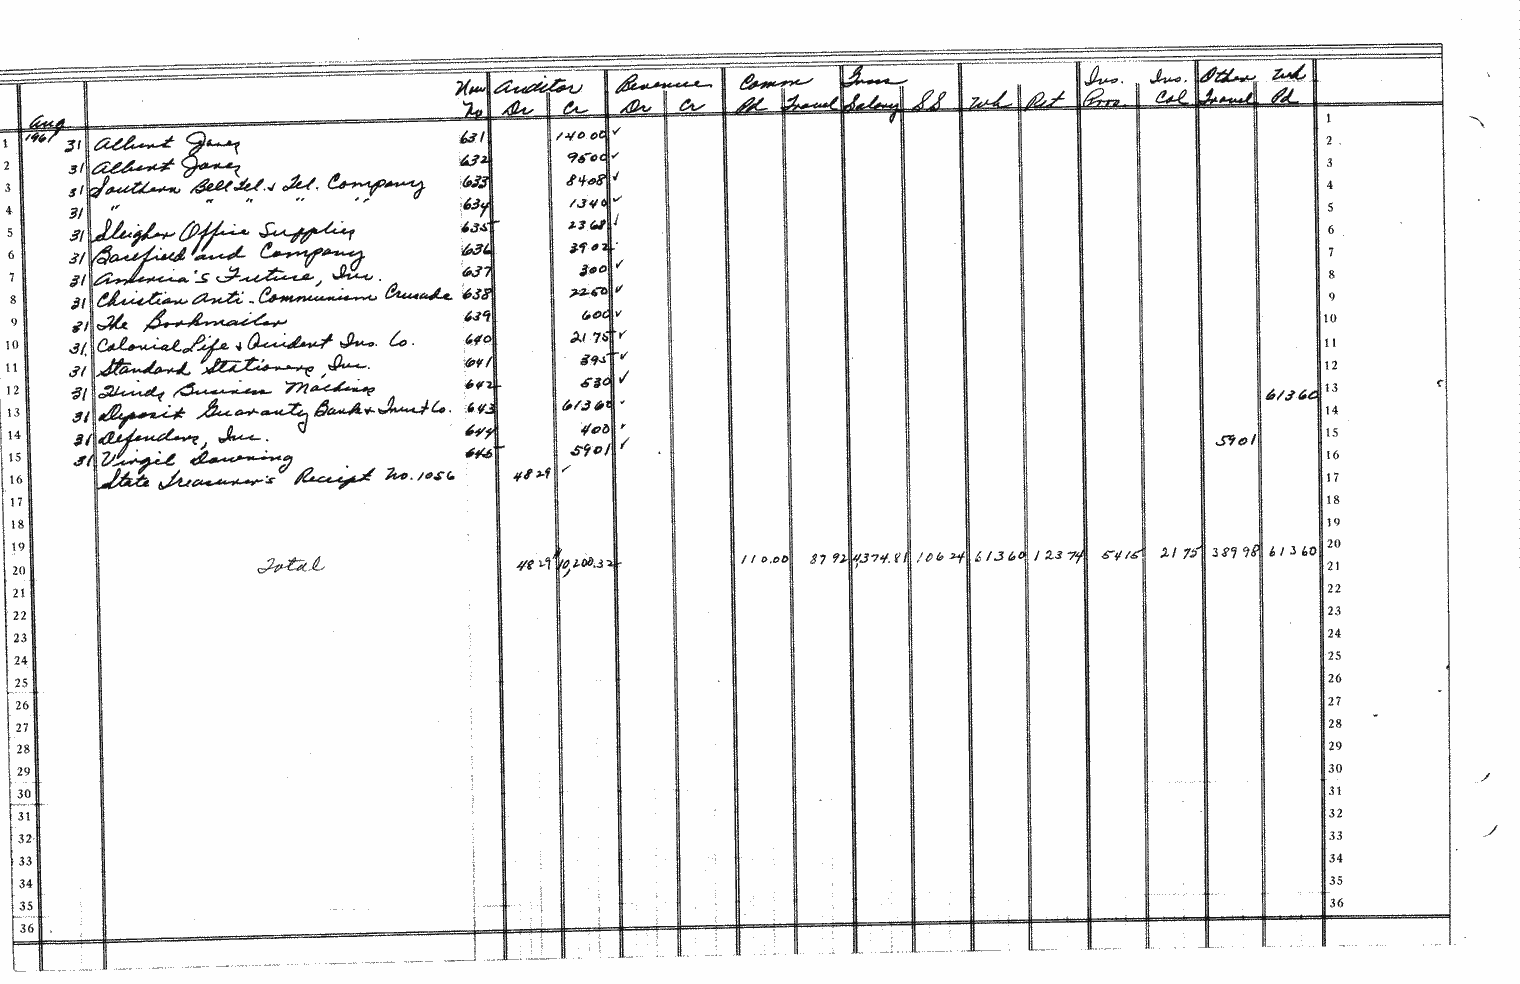 Auditor Revenue Comm Gross Ins. Ins. Other Wh
No Dr Cr Dr Cr Pd Travel Salary SS Wh Ret Prem. Col Travel Pd
Aug
1961
1 31 Albert Jones 631 140.00 ✓ 1
2 31 Albert Jones 632 95 00 ✓ 2
3 31 Southern Bell Tel. & Tel. Company 633 84 08 ✓ 3
4 31 " " " " " 634 13 40 ✓ 4
5 31 Office Supplies 635 23 68 ✓ 5
6 31 Barefield and Company 636 39 02 6
7 31 America's Future, Inc. 637 3 00 ✓ 7
8 31 Christian Anti-Communism Crusade 638 22 50 ✓ 8
9 31 The Bookmailer 639 6 00 ✓ 9
10 31 Colonial Life & Accident Ins. Co. 640 21 75 ✓ 10
11 31 Standard Stationers, Inc. 641 3 95 ✓ 11
12 31 Hinds Business Machines 642 5 30 ✓ 12
13 31 Deposit Guaranty Bank & Trust Co. 643 613 60 ✓ 613 60 13
14 31 Defenders, Inc. 644 4 00 ✓ 14
15 31 Virgil Downing 645 59 01 ✓ 59 01 15
16 State Treasurer's Receipt No. 1056 48 29 ✓ 16
17 17
18 18
19 19
20 Total 48 29 10,200.32 110.00 87 92 4,374.81 106 24 613 60 123 74 54 15 21 75 389 98 613 60 20
21 21
22 22
23 23
24 24
25 25
26 26
27 27
28 28
29 29
30 30
31 31
32 32
33 33
34 34
35 35
36 36